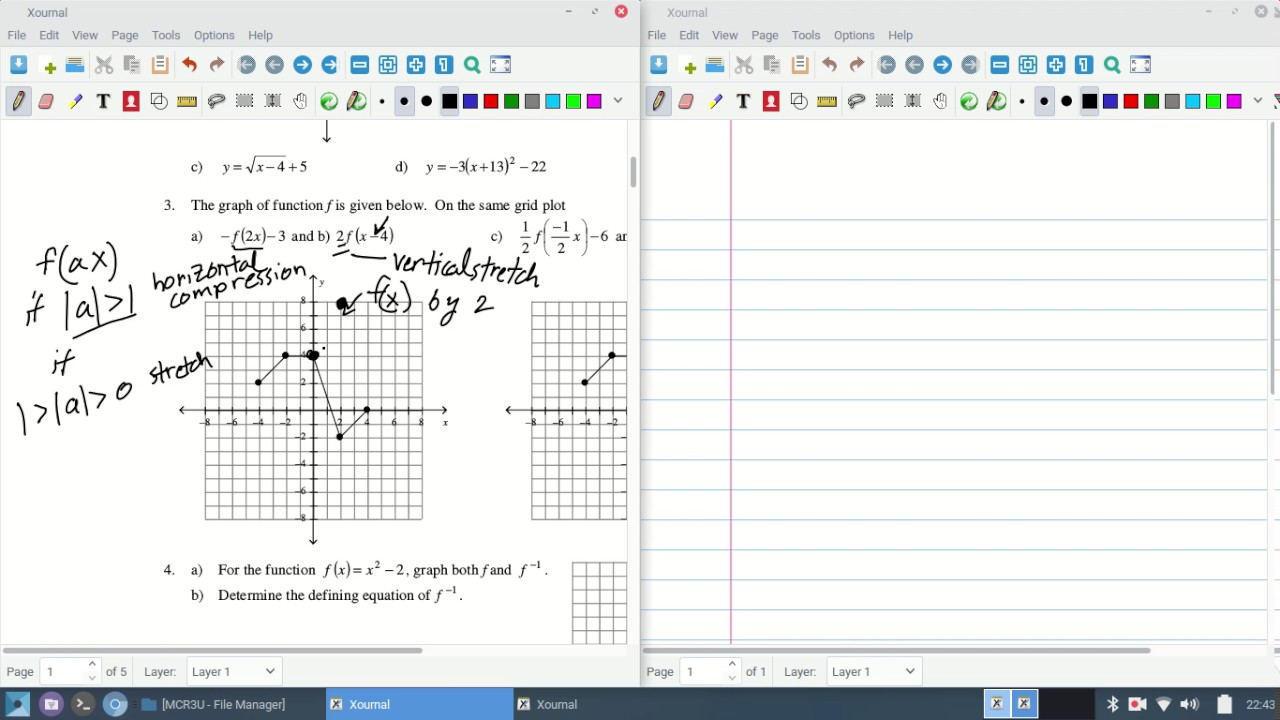 Xournal
File Edit View Page Tools Options Help
c) y = √x−4 + 5
d) y = −3(x+13)² − 22
3. The graph of function f is given below. On the same grid plot
a) −f(2x)−3 and b) 2f(x−4)
c) 1/2 f(−1/2 x)−6 ar
f(ax)
if |a|>1
horizontal
compression
vertical stretch
f(x) by 2
if
1>|a|>0
stretch
y
8
6
4
2
-8 -6 -4 -2 2 4 6 8 x
-2
-4
-6
-8
-8 -6 -4 -2
4. a) For the function f(x) = x² − 2, graph both f and f⁻¹.
b) Determine the defining equation of f⁻¹.
Page 1 of 5 Layer: Layer 1
Xournal
File Edit View Page Tools Options Help
Page 1 of 1 Layer: Layer 1
[MCR3U - File Manager] Xournal Xournal 22:43